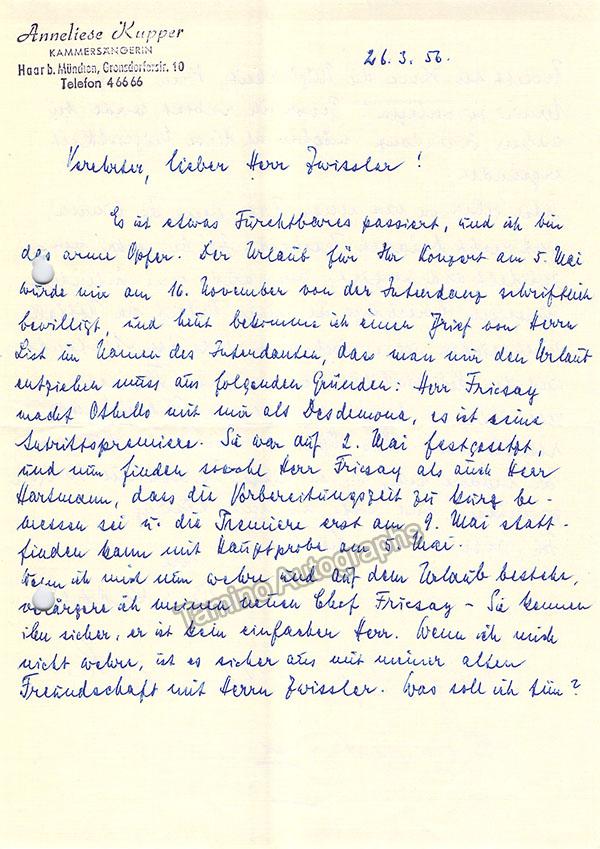 Anneliese Kupper
KAMMERSÄNGERIN
Haar b. München, Gronsdorferstr. 10
Telefon 46666
26.3.56.
Verehrter, lieber Herr Zwissler!
Es ist etwas Furchtbares passiert, und ich bin
das arme Opfer. Der Urlaub für Ihr Konzert am 5. Mai
wurde mir am 16. November von der Intendanz schriftlich
bewilligt, und heut bekomme ich einen Brief von Herrn
List im Namen des Intendanten, dass man mir den Urlaub
entziehen muss aus folgenden Gründen: Herr Fricsay
macht Othello mit mir als Desdemona, es ist seine
Antrittspremiere. Sie war auf 2. Mai festgesetzt,
und nun finden sowohl Herr Fricsay als auch Herr
Hartmann, dass die Vorbereitungszeit zu kurz be-
messen sei u. die Premiere erst am 9. Mai statt-
finden kann mit Hauptprobe am 5. Mai.
Wenn ich mich nun wehre und auf dem Urlaub bestehe,
verärgere ich meinen neuen Chef Fricsay – Sie kennen
ihn sicher, er ist kein einfacher Herr. Wenn ich mich
nicht wehre, ist es sicher aus mit meiner alten
Freundschaft mit Herrn Zwissler. Was soll ich tun?
Tamino Autographs